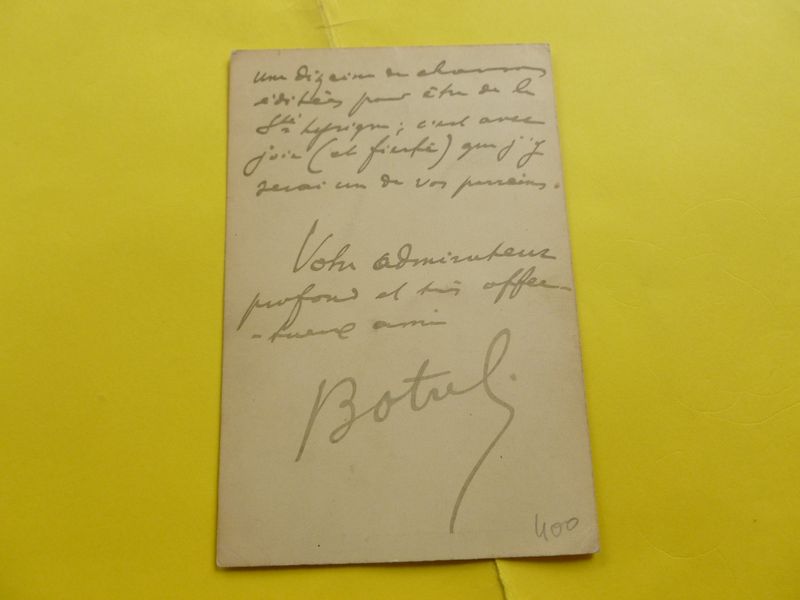 une dizaine de chansons
éditées pour être de la
Sté Lyrique ; c'est avec
joie (et fierté) que j'y
serai un de vos parrains.
Votre admirateur
profond et très affec-
-tueux ami
Botrel.
400